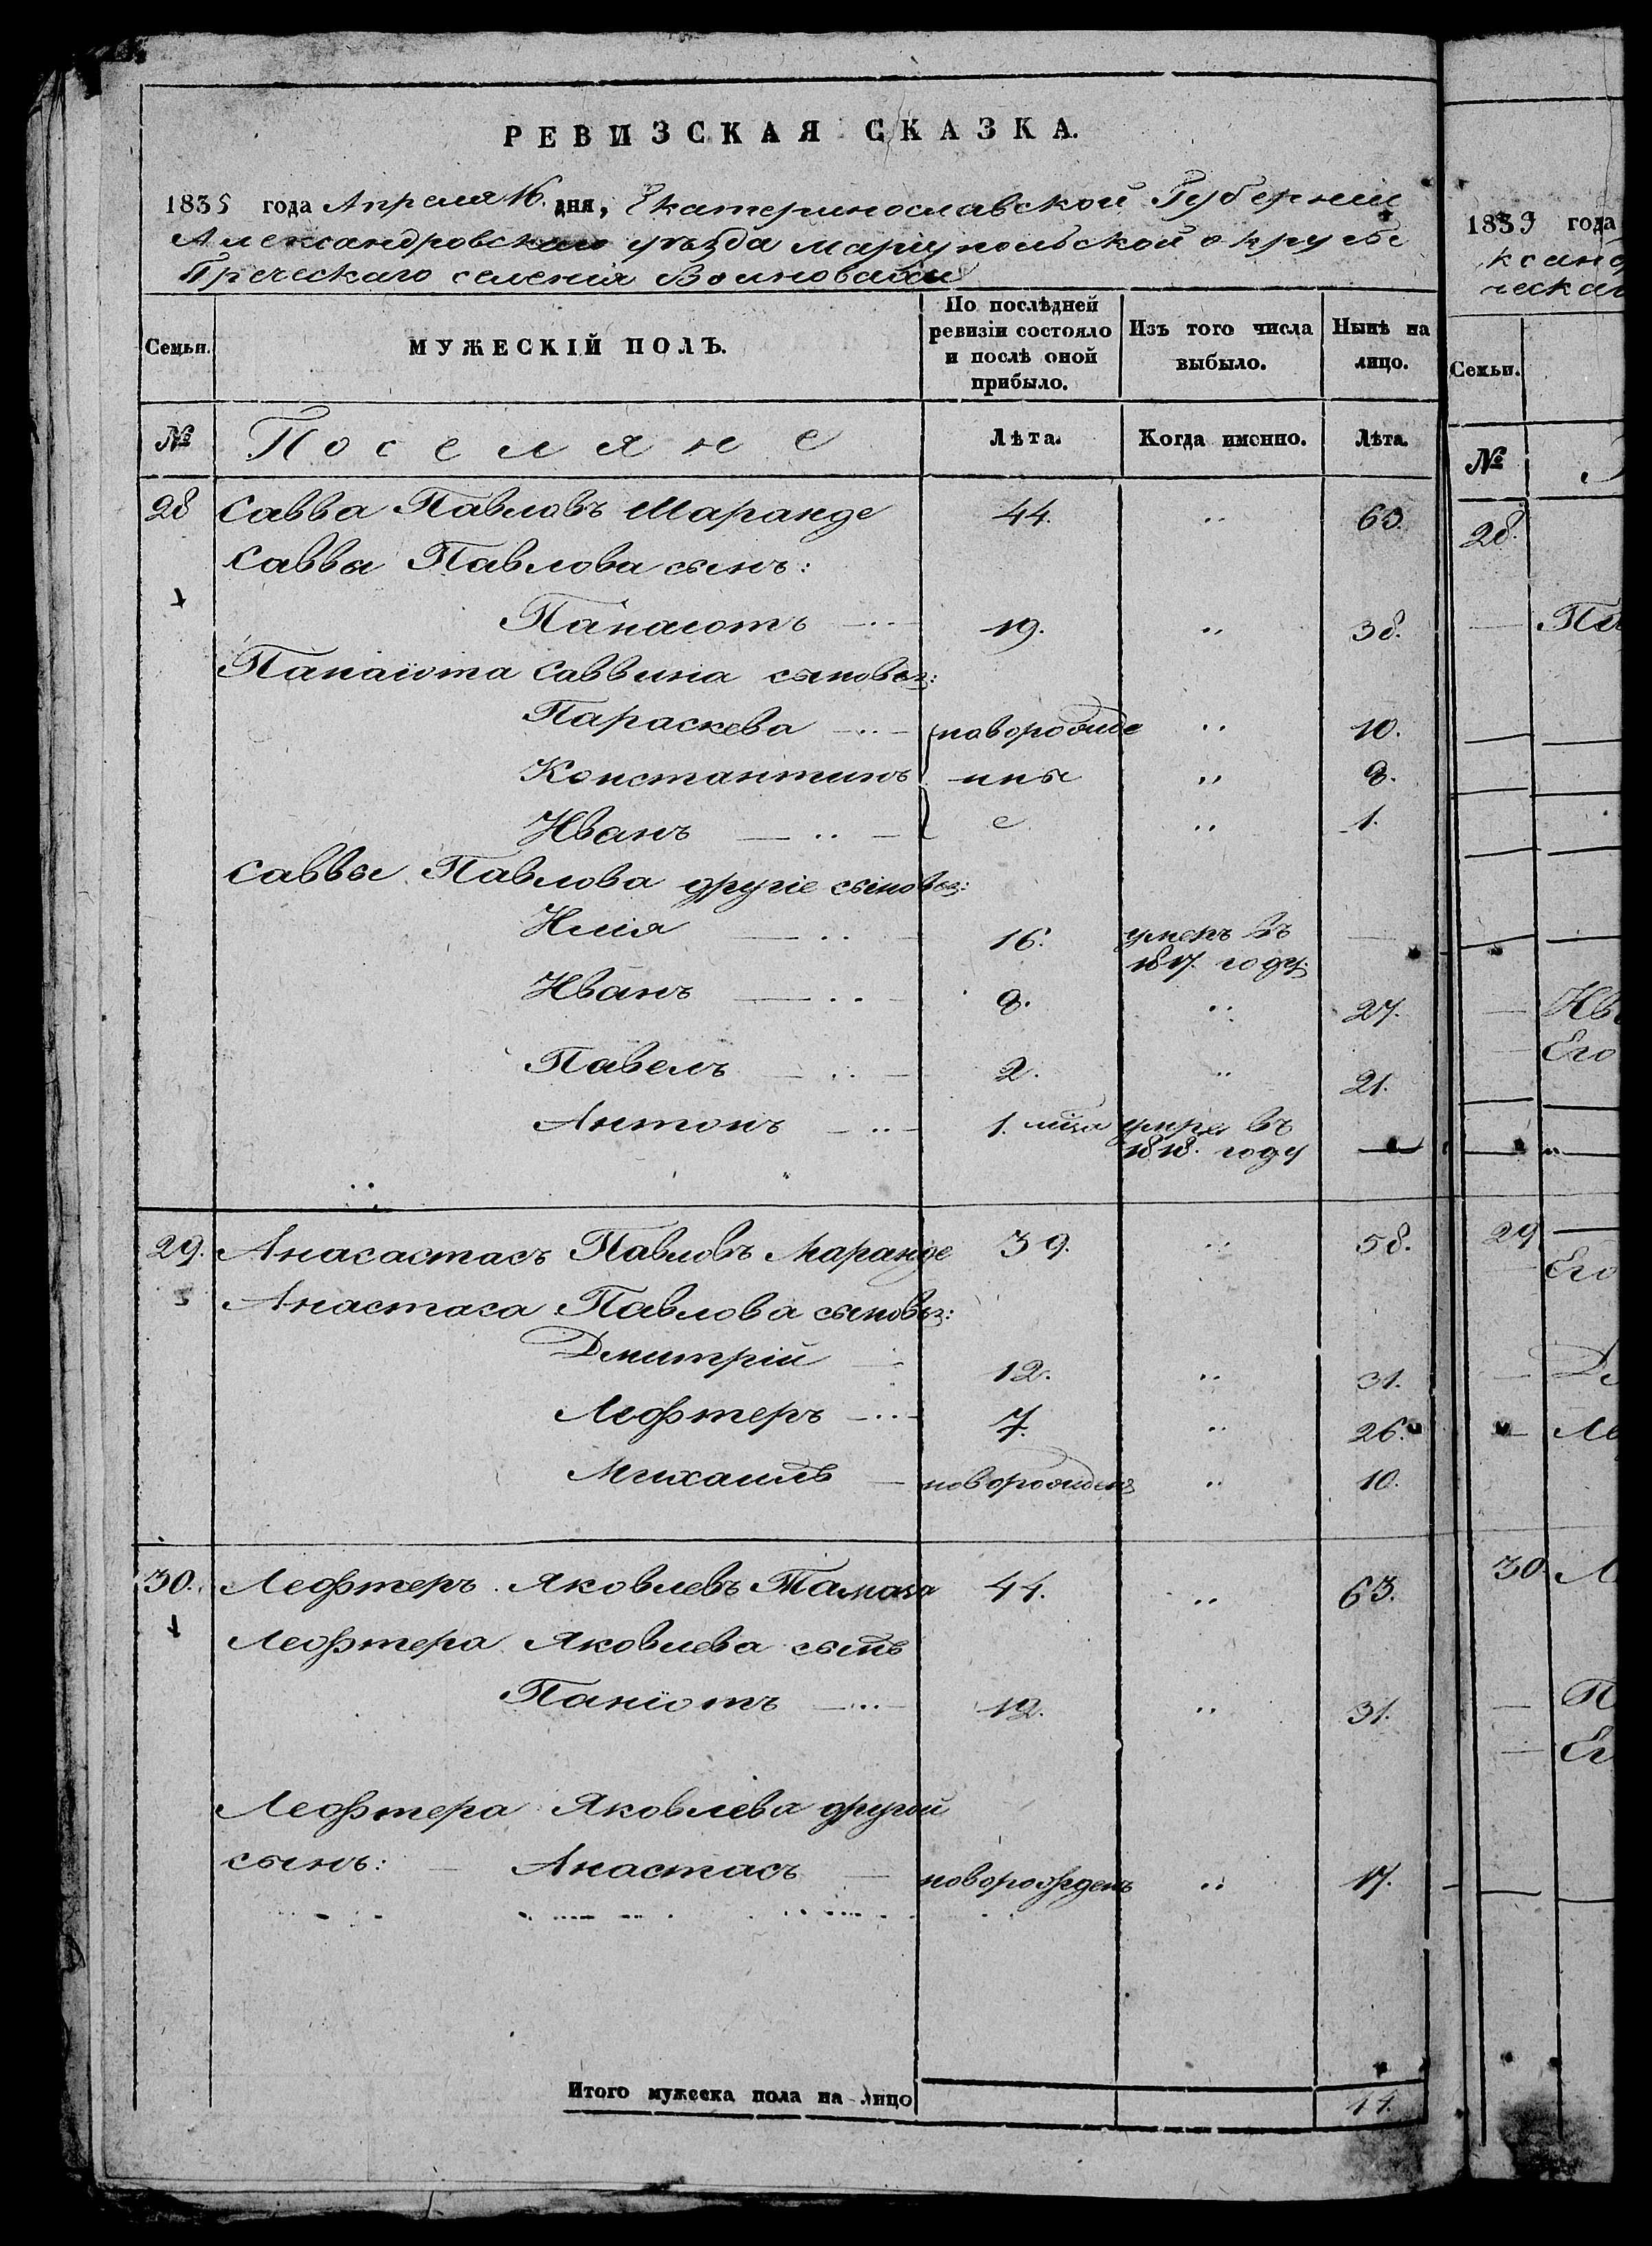 РЕВИЗСКАЯ СКАЗКА.
1835 года Апреля 16. дня, Екатеринославской Губернии
Александровскаго уѣзда мариупольской округе
Греческаго селенія
Семьи. МУЖЕСКІЙ ПОЛЪ. По послѣдней ревизіи состояло и послѣ оной прибыло. Изъ того числа выбыло. Нынѣ на лицо.
№ Поселяне Лѣта. Когда именно. Лѣта.
28 Савва Павловъ Маранде 44. „ 63.
Саввы Павлова сынъ:
Панаіотъ 19. „ 38.
Панаіота Саввина сыновья:
Параскева новорожде „ 10.
Константинъ нны „ 8.
Иванъ е „ 1.
Саввы Павлова другіе сыновья:
Илія 16. умеръ въ
1817. году
Иванъ 8. „ 27.
Павелъ 2. „ 21.
Антонъ 1. мца умре въ
1818. году
29. Анасастасъ Павловъ Маранде 39. „ 58.
Анастаса Павлова сыновья:
Дмитрій 12. „ 31.
Лефтеръ 7. „ 26.
Михаилъ новорожденъ „ 10.
30. Лефтеръ Яковлевъ 44. „ 63.
Лефтера Яковлева сынъ
Паніотъ 12. „ 31.
Лефтера Яковлева другой
сынъ: Анастасъ новорожденъ „ 17.
Итого мужеска пола на лицо
1835 года
Семьи.
№
28.
Его
29
Его
30